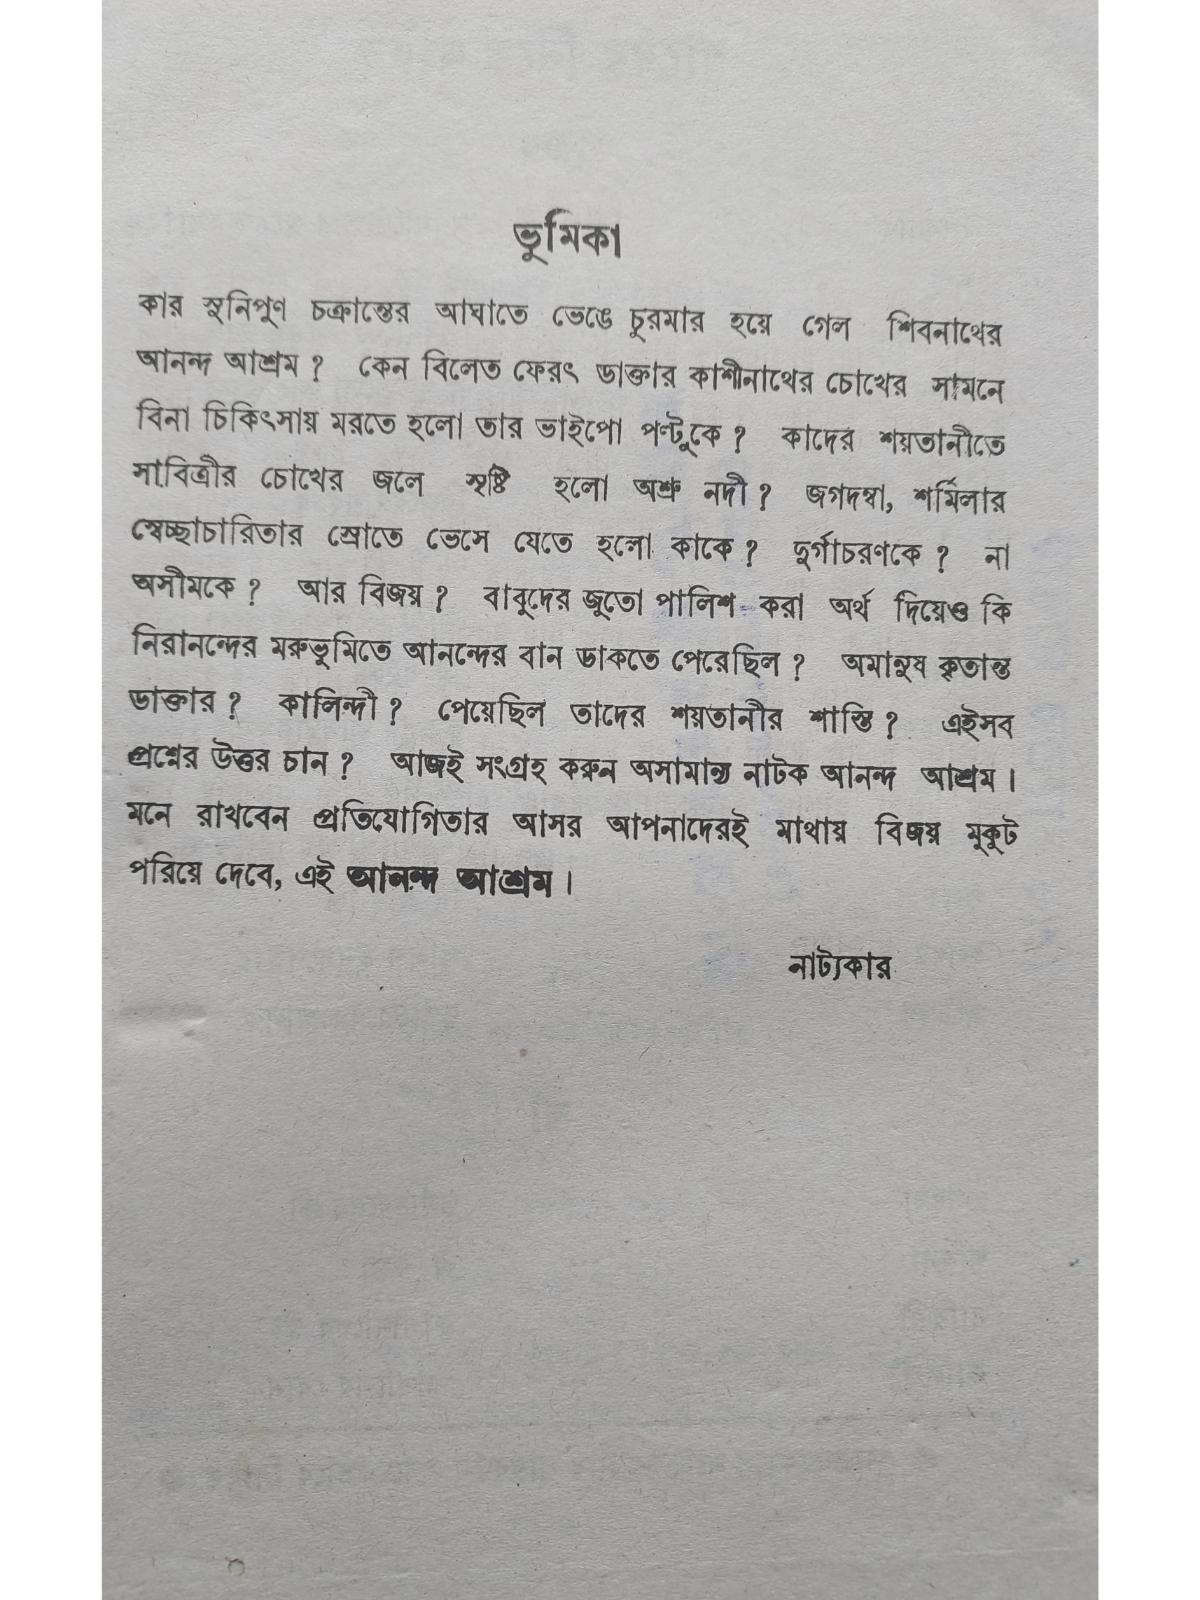 ভূমিকা
কার সুনিপুণ চক্রান্তের আঘাতে ভেঙে চুরমার হয়ে গেল শিবনাথের
আনন্দ আশ্রম ? কেন বিলেত ফেরৎ ডাক্তার কাশীনাথের চোখের সামনে
বিনা চিকিৎসায় মরতে হলো তার ভাইপো পল্টুকে ? কাদের শয়তানীতে
সাবিত্রীর চোখের জলে সৃষ্টি হলো অশ্রু নদী ? জগদম্বা, শর্মিলার
স্বেচ্ছাচারিতার স্রোতে ভেসে যেতে হলো কাকে ? দুর্গাচরণকে ? না
অসীমকে ? আর বিজয় ? বাবুদের জুতো পালিশ করা অর্থ দিয়েও কি
নিরানন্দের মরুভূমিতে আনন্দের বান ডাকতে পেরেছিল ? অমানুষ কৃতান্ত
ডাক্তার ? কালিন্দী ? পেয়েছিল তাদের শয়তানীর শাস্তি ? এইসব
প্রশ্নের উত্তর চান ? আজই সংগ্রহ করুন অসামান্য নাটক আনন্দ আশ্রম ।
মনে রাখবেন প্রতিযোগিতার আসর আপনাদেরই মাথায় বিজয় মুকুট
পরিয়ে দেবে, এই আনন্দ আশ্রম ।
নাট্যকার